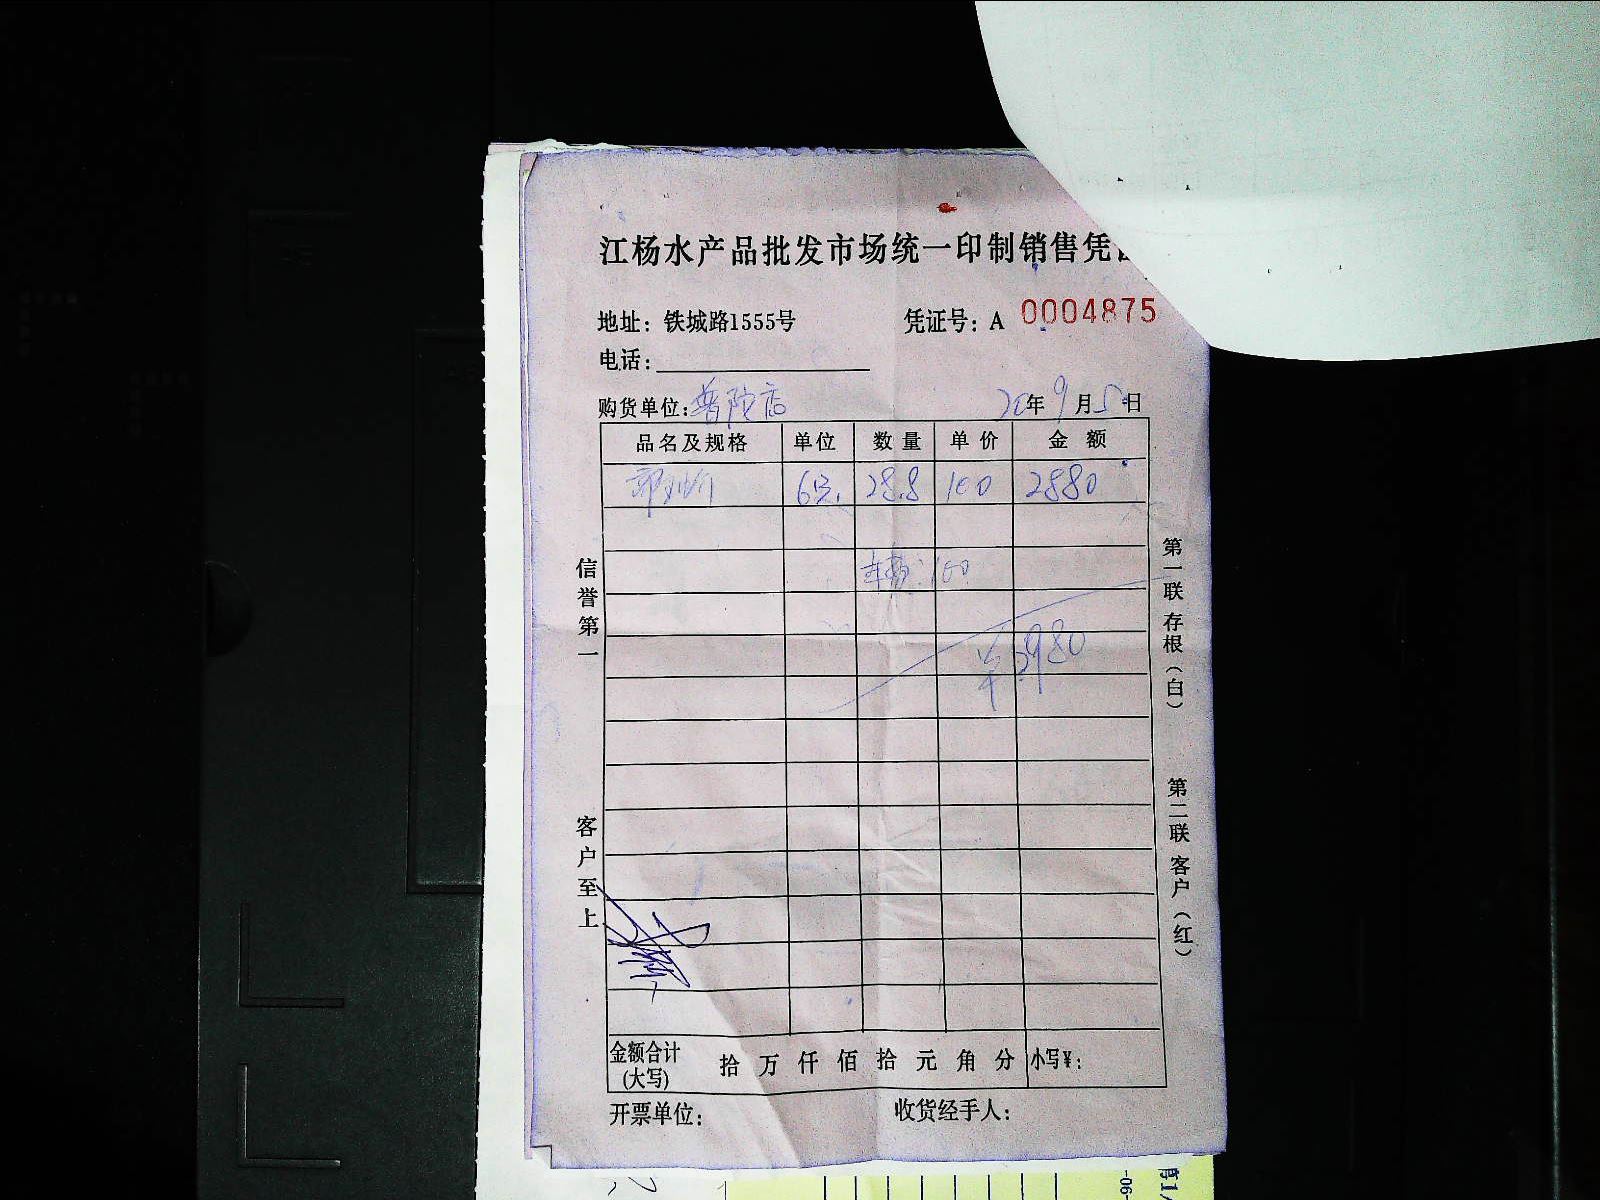 江杨水产品批发市场统一印制销售凭
地址：铁城路1555号 凭证号：A 0004875
电话：
购货单位：普陀店 20年9月5日
品名及规格 单位 数量 单价 金额
28.8 100 2880
车费：100
2980
信誉第一
客户至上
第一联存根（白）
第二联客户（红）
金额合计（大写） 拾 万 仟 佰 拾 元 角 分 小写¥：
开票单位： 收货经手人：